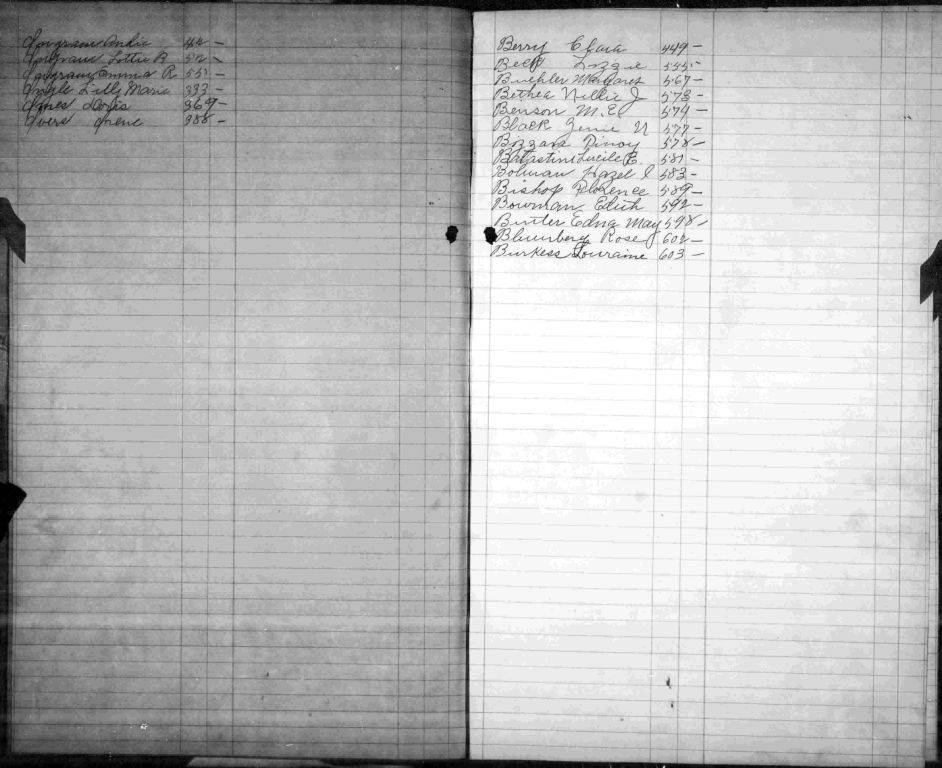 Ingram Annie 44 -
Ingram Lottie B. 52 -
Ingram, Emma R. 551 -
Ingle Lilly Marie 333 -
Ines Doris 369 -
Ivers Irene 388 -
Berry Clara 449 -
Beck Lizzie 555 -
Buehler Margaret 567 -
Bethea Nillie J 573 -
Benson M. E. 574 -
Black 577 -
Bizzara 578 -
Batastini Lucile E. 581 -
Bolman Hazel I 583 -
Bishop Florence 589 -
Bowman Edith 592 -
Bunter Edna May 598 -
Blumberg Rose 602 -
Burkess Louraine 603 -